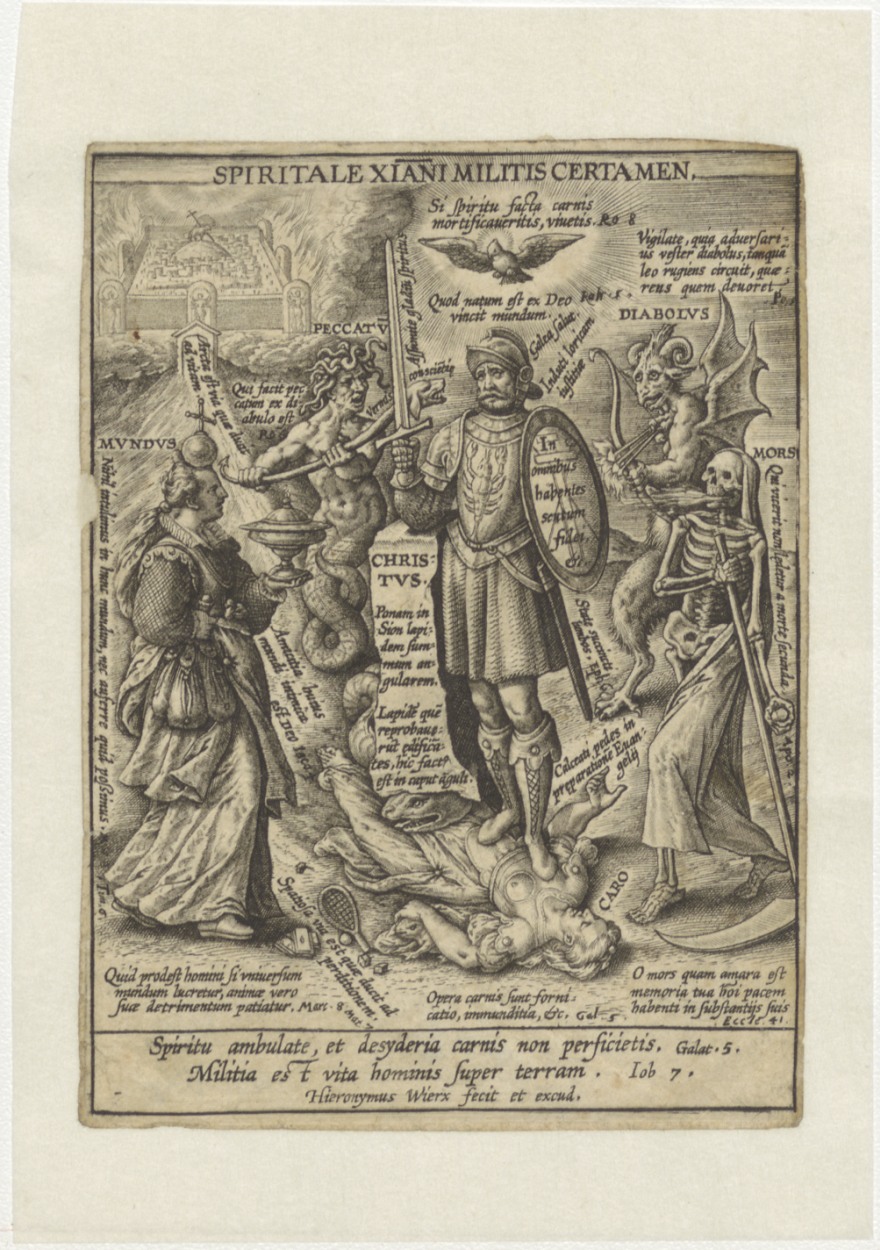 SPIRITALE XIANI MILITIS CERTAMEN,
Si spiritu facta carnis
mortificaveritis, viuetis. Ro 8
Vigilate, quia aduersari-
us vester diabolus, tanquā
leo rugiens circuit, quæ-
rens quem deuoret.
Quod natum est ex Deo Ioh. 5.
vincit mundum.
Assumite gladiū spiritus
PECCATV
DIABOLVS
Galea salut.
Induti loricam
iustitiæ
Arcta est via quæ ducit
ad vitam
Qui facit pec-
catum ex di-
abulo est
Vermis
conscientiæ
MVNDVS
MORS
In
omnibus
habentes
scutum
fidei,
&c.
Nihil intulimus in hunc mundum, nec auferre quid possimus. 1 Tim. 6.
Qui vicerit non ledetur a morte secunda Apo. 2.
CHRIS-
TVS.
Ponam in
Sion lapi-
dem sum-
mum an-
gularem.
Lapidē quē
reprobaue-
rūt edifica-
tes, hic fact9
est in caput āguli.
Amicitia huius
mundi inimica
est Deo
State succincti
lumbos. Eph.
Calceati pedes in
preparatione Euan-
gelij
CARO
Spatiosa via est quæ ducit ad
perditionem. Mat. 7
Quid prodest homini si vniuersum
mundum lucretur, animæ vero
suæ detrimentum patiatur. Marc. 8
Opera carnis sunt forni-
catio, immunditia, &c. Gal. 5
O mors quam amara est
memoria tua hōi pacem
habenti in substantijs suis
Eccle. 41.
Spiritu ambulate, et desyderia carnis non perficietis. Galat. 5.
Militia est vita hominis super terram. Iob 7.
Hieronymus Wierx fecit et excud.